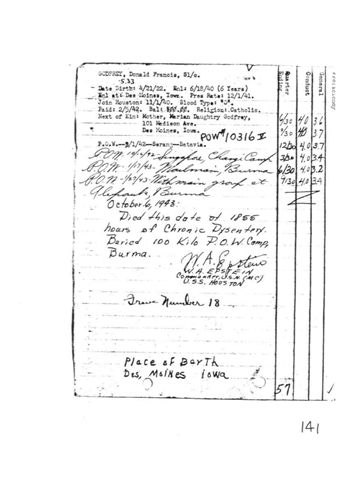 GODFREY, Donald Francis, S1/c.
5.33
Date Birth: 4/21/22. Enl: 6/18/40 (6 Years)
Enl at: Des Moines, Iowa. Prev Rate: 12/1/41.
Join Houston: 11/1/40. Blood Type: "O".
Paid: 2/5/42. Bal: Religion: Catholic.
Next of Kin: Mother, Marian Daughtry Godfrey,
101 Madison Ave.
Des Moines, Iowa.
POW# 10316 I
P.O.W.--3/1/42--Serang--Batavia.
P.O.W. Singapore, Changi Camp
P.O.W. Moulmein, Burma
P.O.W. With main group at
Burma
October 6, 1943:
Died this date at 1855
hours of Chronic Dysentery.
Buried 100 Kilo P.O.W. Camp,
Burma.
W. A. Epstein
W. A. EPSTEIN
Commander, U.S.N. (MC)
U.S.S. HOUSTON
Grave Number 18
Place of Berth
Des, Moines Iowa
Quarter
Ending
6/30 4.0 3.6
9/30 4.0 3.7
12/30 4.0 3.7
3/30 4.0 3.4
6/30 4.0 3.2
9/30 4.0 3.4
57
141